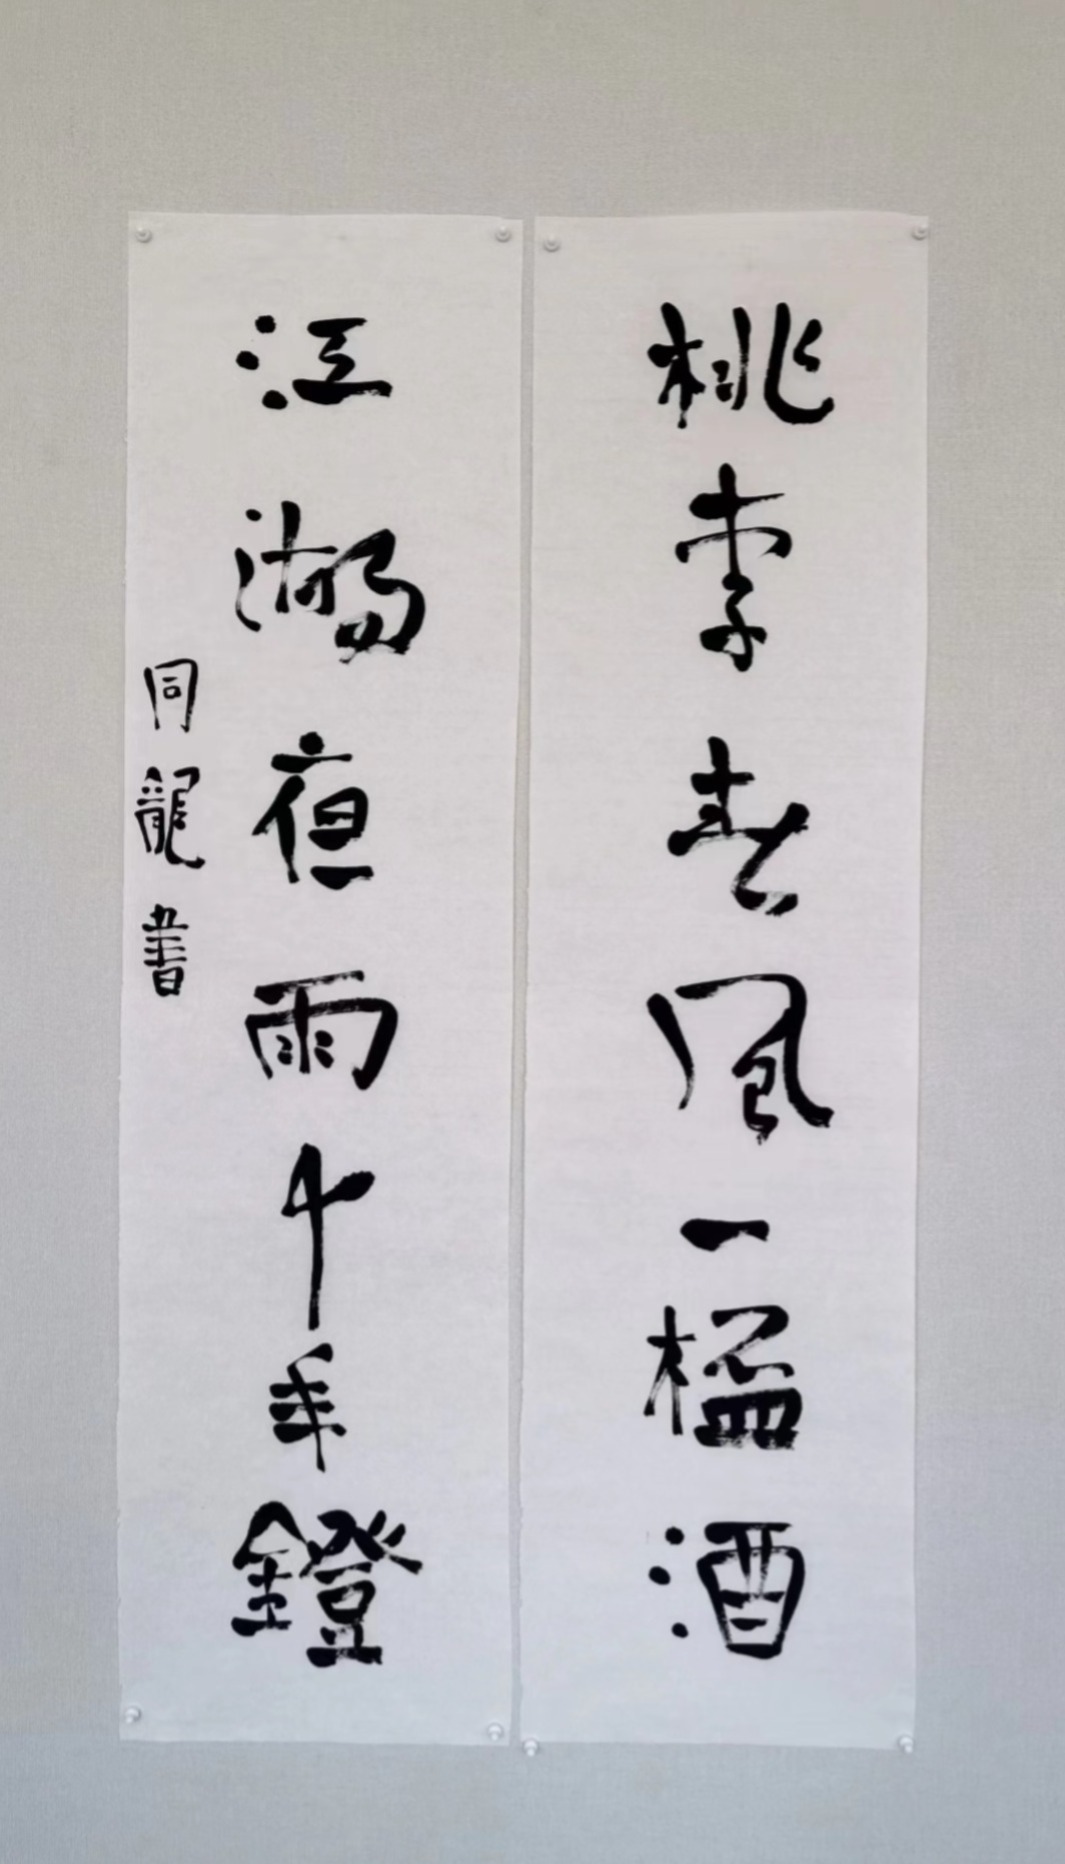 桃李春風一榲酒
江湖夜雨十年鐙
同龍書